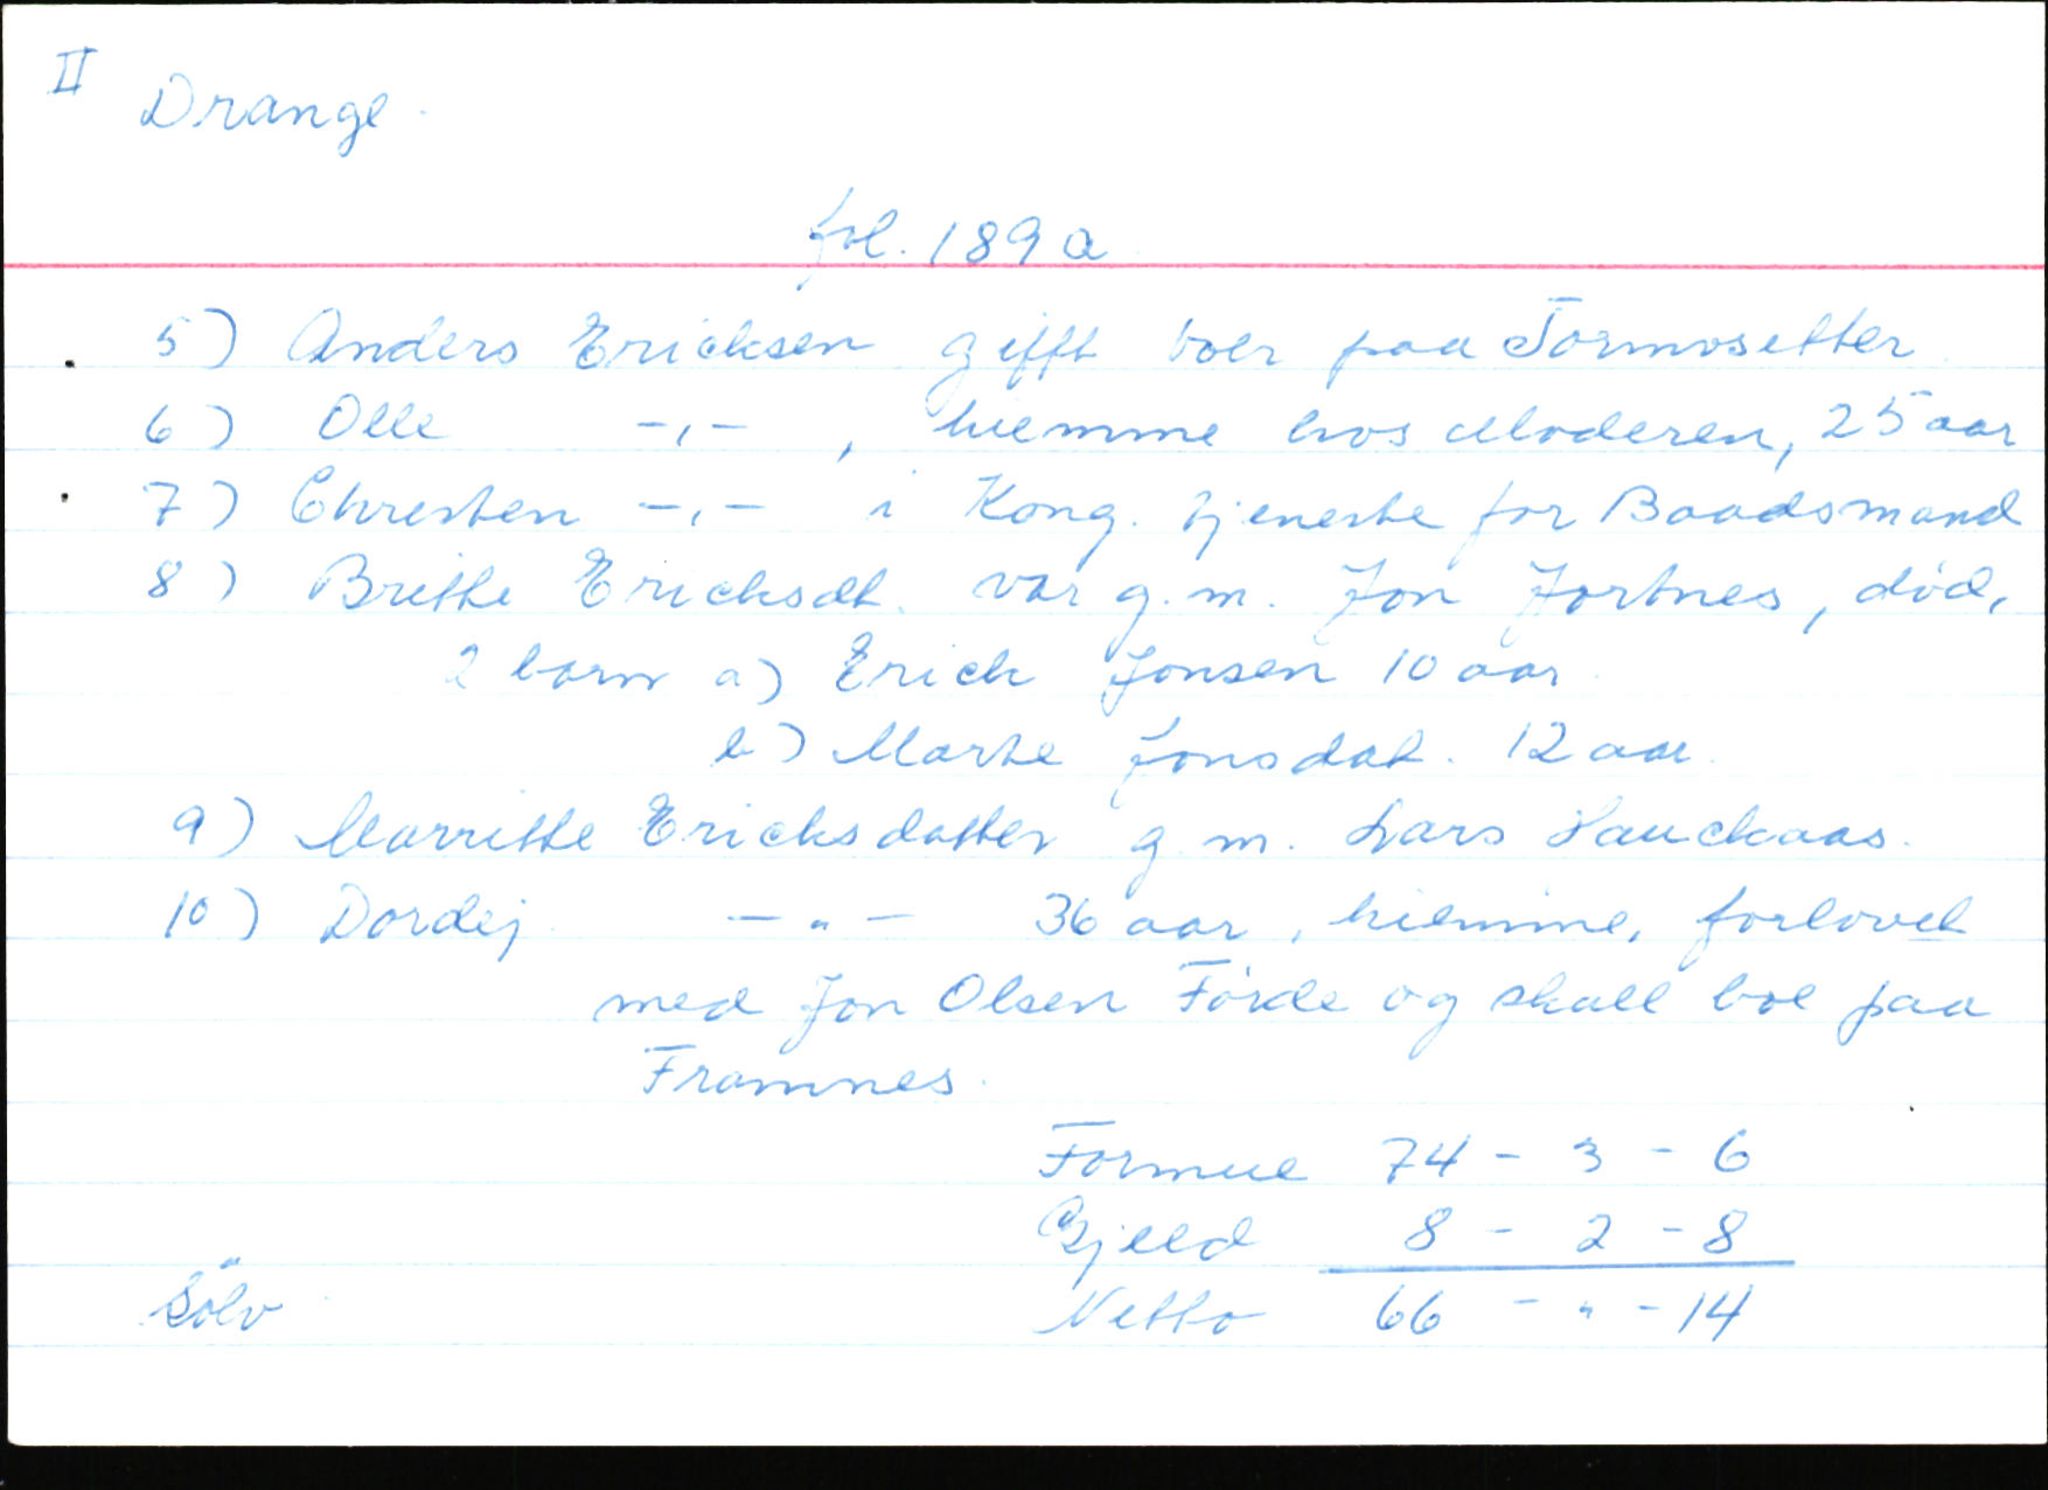 II
Drange.
fol. 189 a
5) Anders Ericksen gifft boer paa Tormosetter
6) Olle -,- , hiemme hos Moderen, 25 aar
7) Chresten -,- i Kong. tjeneste for Baadsmand
8) Brithe Ericksdt. var g. m. Jon Jortnes, död,
2 born a) Erich Jonsen 10 aar.
b) Marte Jonsdat. 12 aar.
9) Marritte Ericksdatter g. m. Lars Hauckaas.
10) Dordej -"- 36 aar, hiemme, forlovet
med Jon Olsen Förde og skall boe paa
Framnes.
Formue 74 - 3 - 6
Gjeld 8 - 2 - 8
Sölv Netto 66 - " - 14